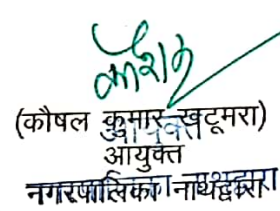 कौशल
(कौषल कुमार खटूमरा)
आयुक्त
नगरपालिका नाथद्वारा